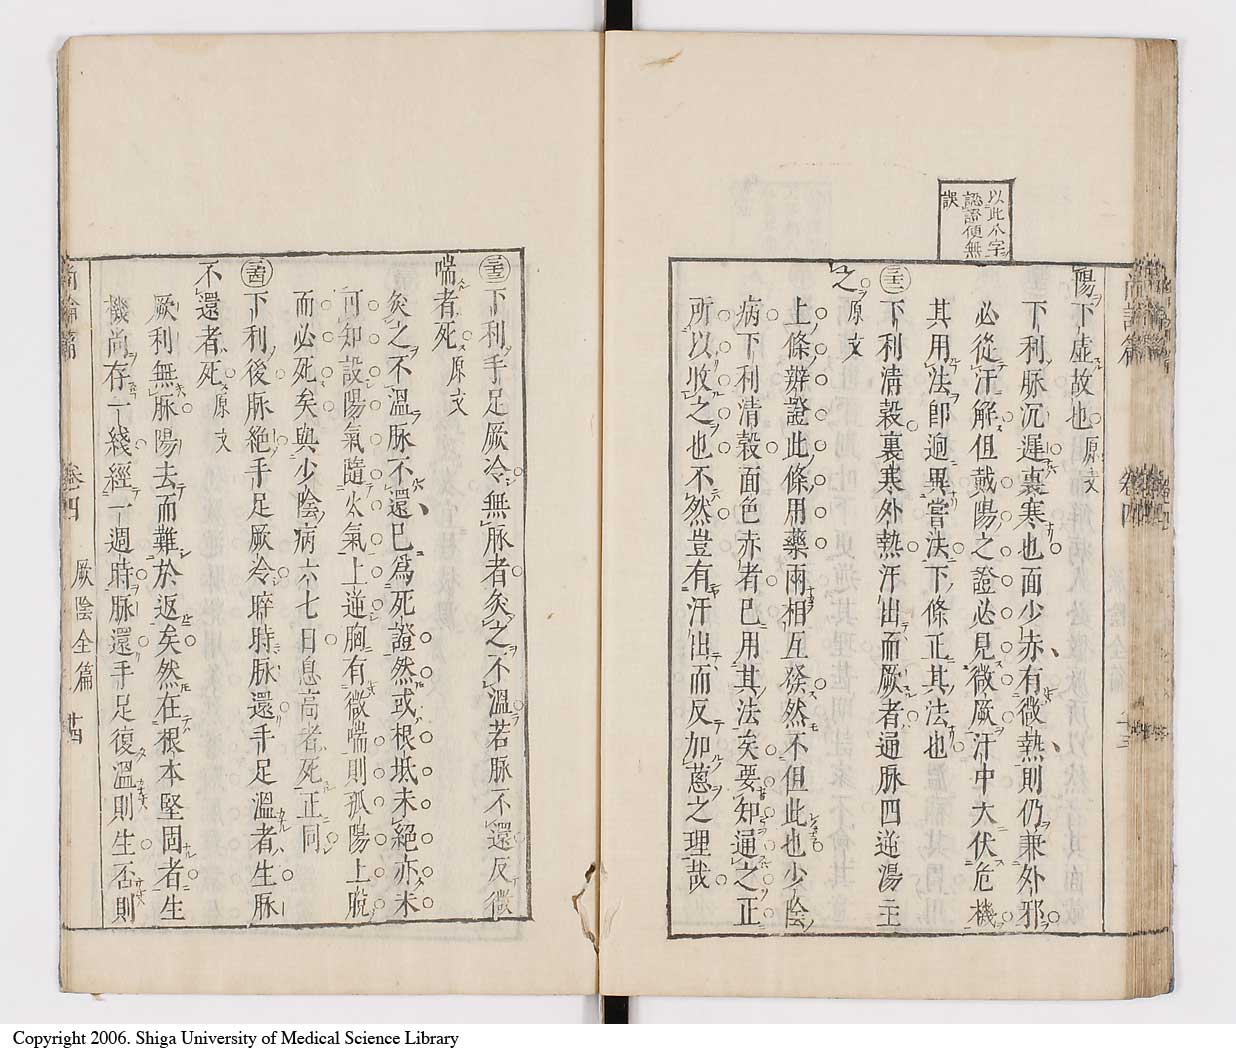 以此八字
認證便無
誤
陽下虛故也原文
下利脉沉遲裏寒也面少赤有微熱則仍兼外邪
必從汗解但戴陽之證必見微厥汗中大伏危機
其用法卽迥異嘗法下條正其法也
下利清穀裏寒外熱汗出而厥者通脉四逆湯主
之原文
上條辨證此條用藥兩相互發然不但此也少陰
病下利清穀面色赤者已用其法矣要知通之正
所以收之也不然豈有汗出而反加蔥之理哉
尚論篇
卷四
下利手足厥冷無脉者灸之不溫若脉不還反微
喘者死原文
灸之不溫脉不還已爲死證然或根柢未絕亦未
可知設陽氣隨火氣上逆胸有微喘則孤陽上脫
而必死矣與少陰病六七日息高者死正同
下利後脉絕手足厥冷晬時脉還手足溫者生脉
不還者死原文
厥利無脉陽去而難於返矣然在根本堅固者生
機尚存一綫經一週時脉還手足復溫則生否則
尚論篇
卷四
厥陰全篇
廿四
Copyright 2006. Shiga University of Medical Science Library